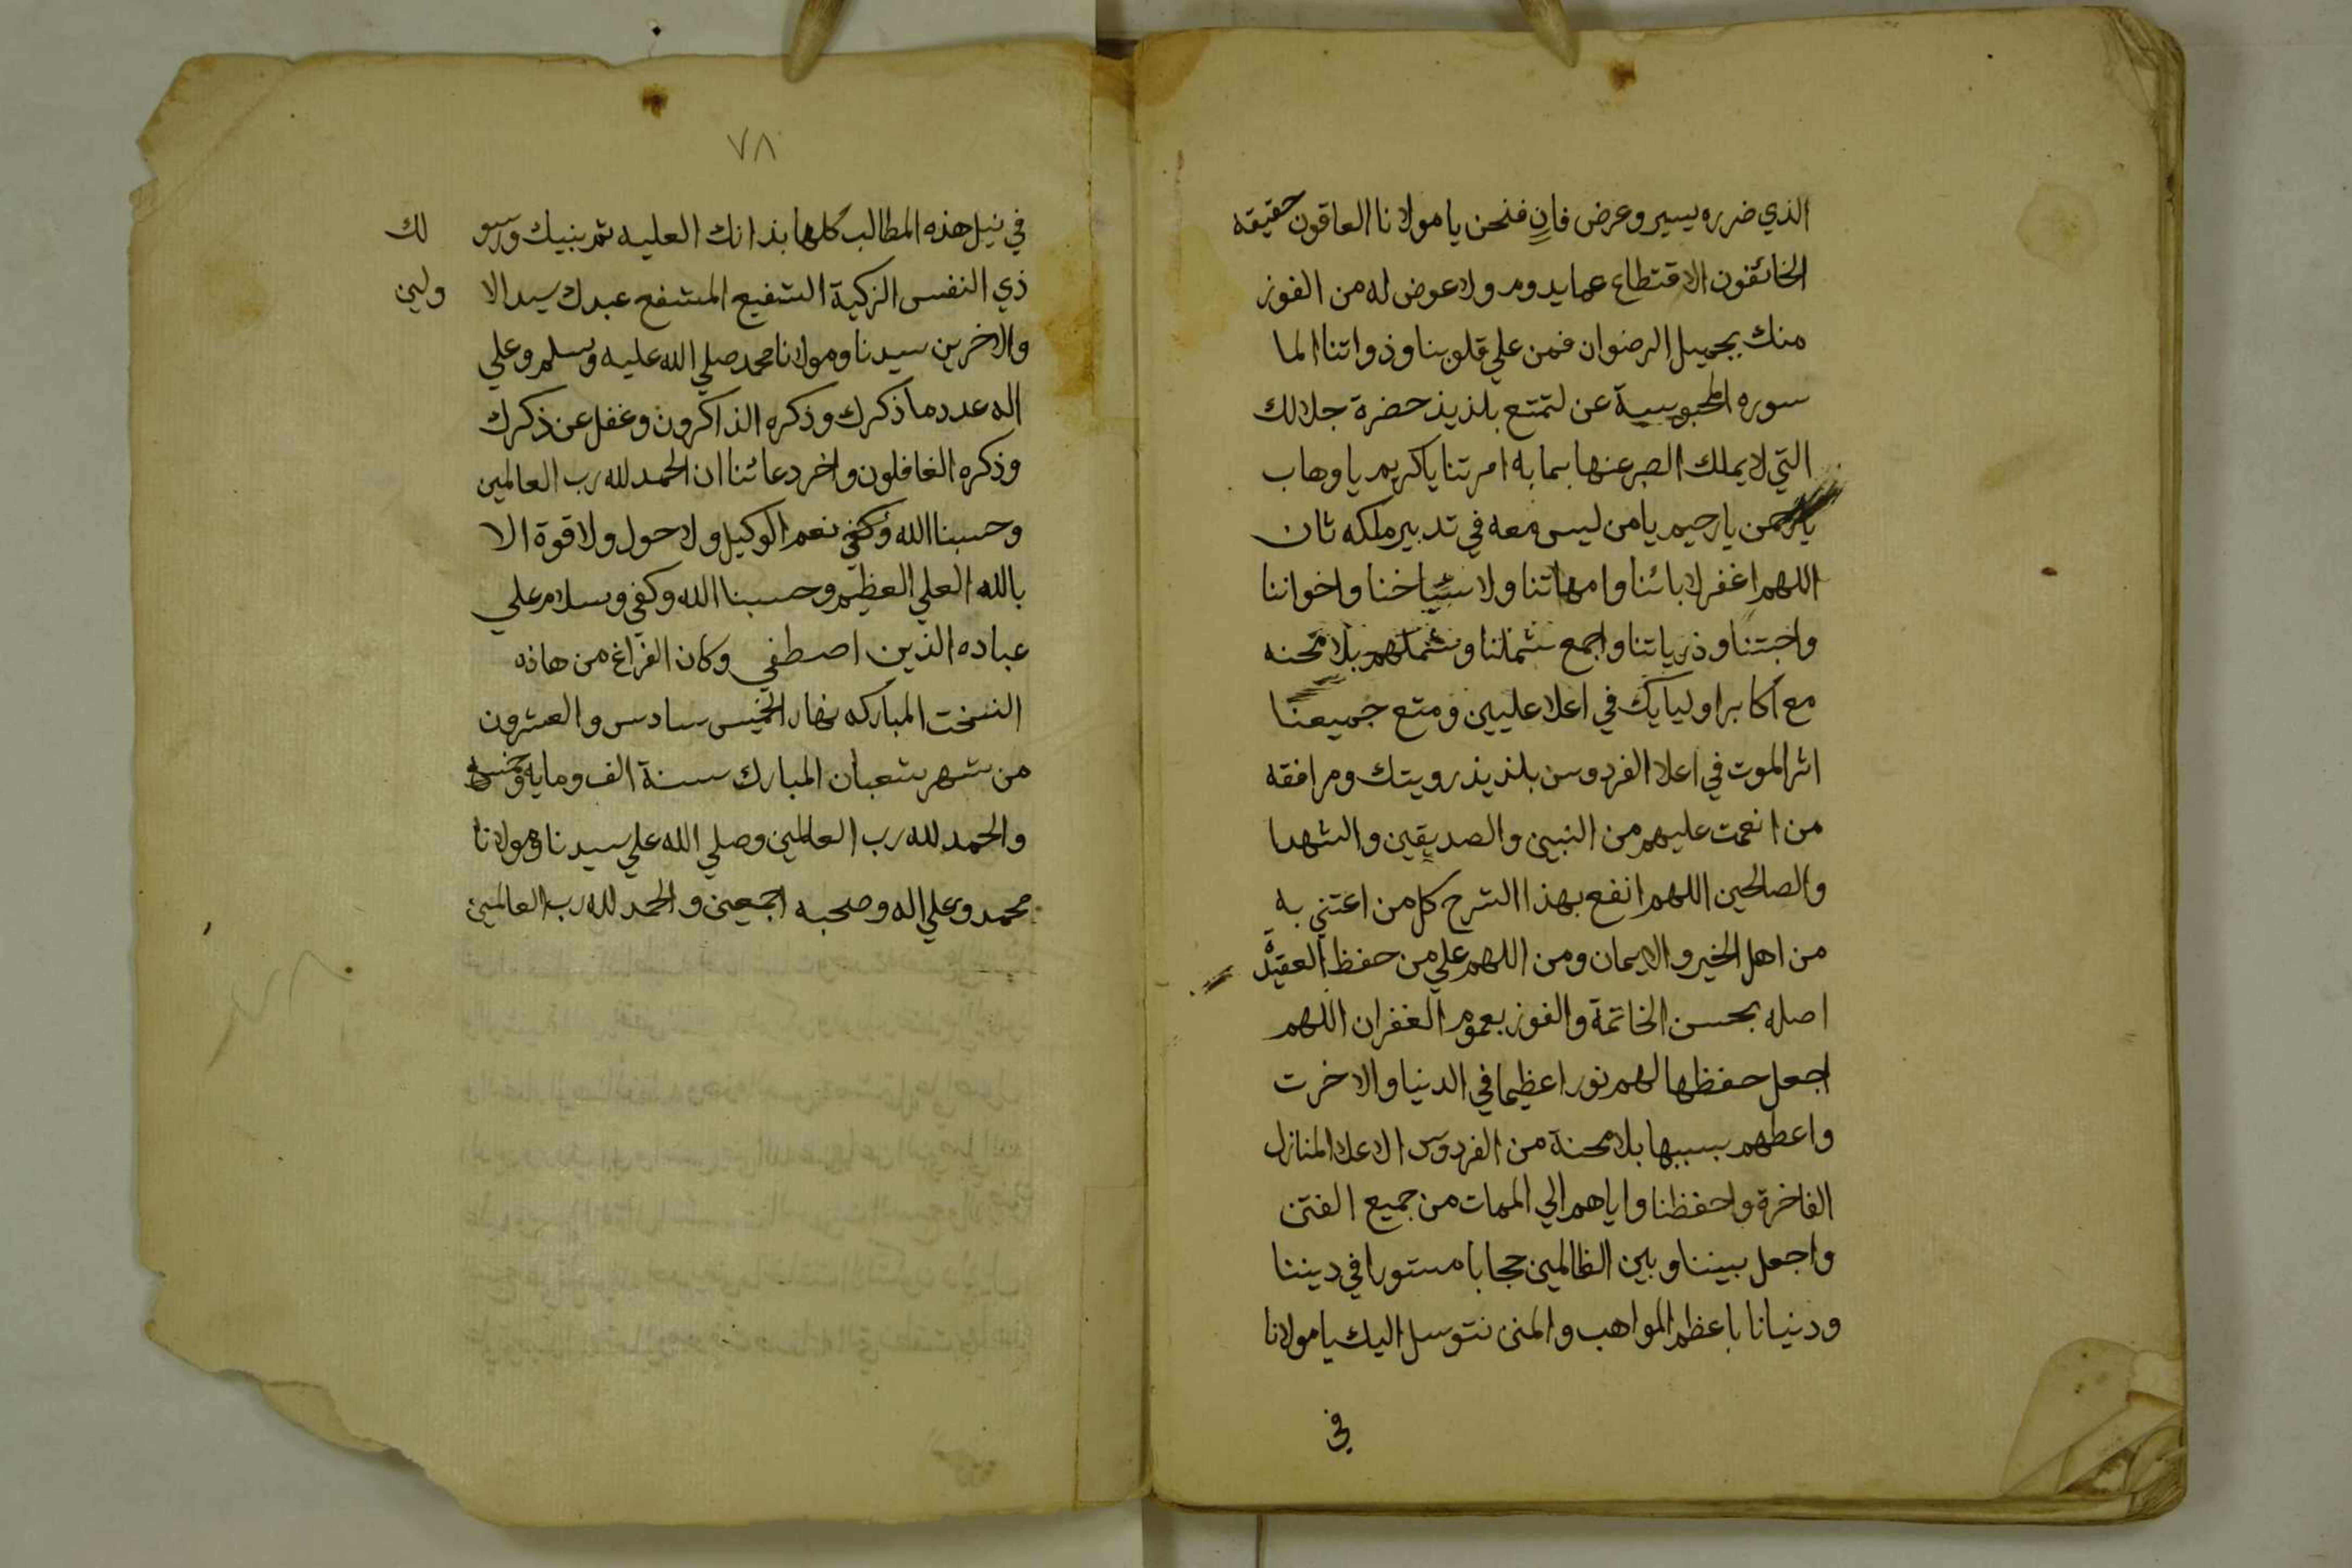 الذي ضرره يسير وعرض فانٍ فنحن يا مولانا العاقون حقيقه
الخائفون الاقتطاع عما يدوم ولا عوض له من الفوز
منك بجميل الرضوان فمن علي قلوبنا وذواتنا الما
سوره المحبوسية عن لتمتع بلذيذ حضرة جلالك
التي لا يملك الصبر عنها بما به امرتنا ياكريم يا وهاب
يارحمن يارحيم يا من ليس معه في تدبير ملكه ثان
اللهم اغفر لابائنا وامهاتنا ولاشياخنا واخواننا
واحبتنا وذرياتنا واجمع شملنا وشملهم بلا محنه
مع اكابر اوليايك في اعلا عليين ومتع جميعنا
اثر الموت في اعلا الفردوس بلذيذ رويتك ومرافقه
من انعمت عليهم من النبين والصديقين والشهدا
والصالحين اللهم انفع بهذا الشرح كل من اعتني به
من اهل الخير والايمان ومن اللهم علي من حفظ العقيدة
اصله بحسن الخاتمة والفوز بعموم الغفران اللهم
اجعل حفظها لهم نورا عظيما في الدنيا والاخرت
واعطهم بسببها بلا محنة من الفردوس الاعلا المنازل
الفاخرة واحفظنا واياهم الي الممات من جميع الفتن
واجعل بيننا وبين الظالمين حجابا مستورا في ديننا
ودنيانا باعظم المواهب والمنن نتوسل اليك يا مولانا
في
٧٨
في نيل هذه المطالب كلها بذاتك العليه ثم بنبيك ورسو لك
ذي النفس الزكية الشفيع المشفع عبدك سيد الا ولين
والاخرين سيدنا ومولانا محمد صلي الله عليه وسلم وعلي
اله عدد ما ذكرك وذكره الذاكرون وغفل عن ذكرك
وذكره الغافلون واخر دعائنا ان الحمد لله رب العالمين
وحسبنا الله وكفي نعم الوكيل ولا حول ولا قوة الا
بالله العلي العظيم وحسبنا الله وكفي وسلام علي
عباده الذين اصطفي وكان الفراغ من هاذه
النسخت المباركه نهار الخميس سادس والعشرون
من شهر شعبان المبارك سنة الف ومايه
والحمد لله رب العالمين وصلي الله علي سيدنا ومولانا
محمد وعلي اله وصحبه اجمعين والحمد لله رب العالمين